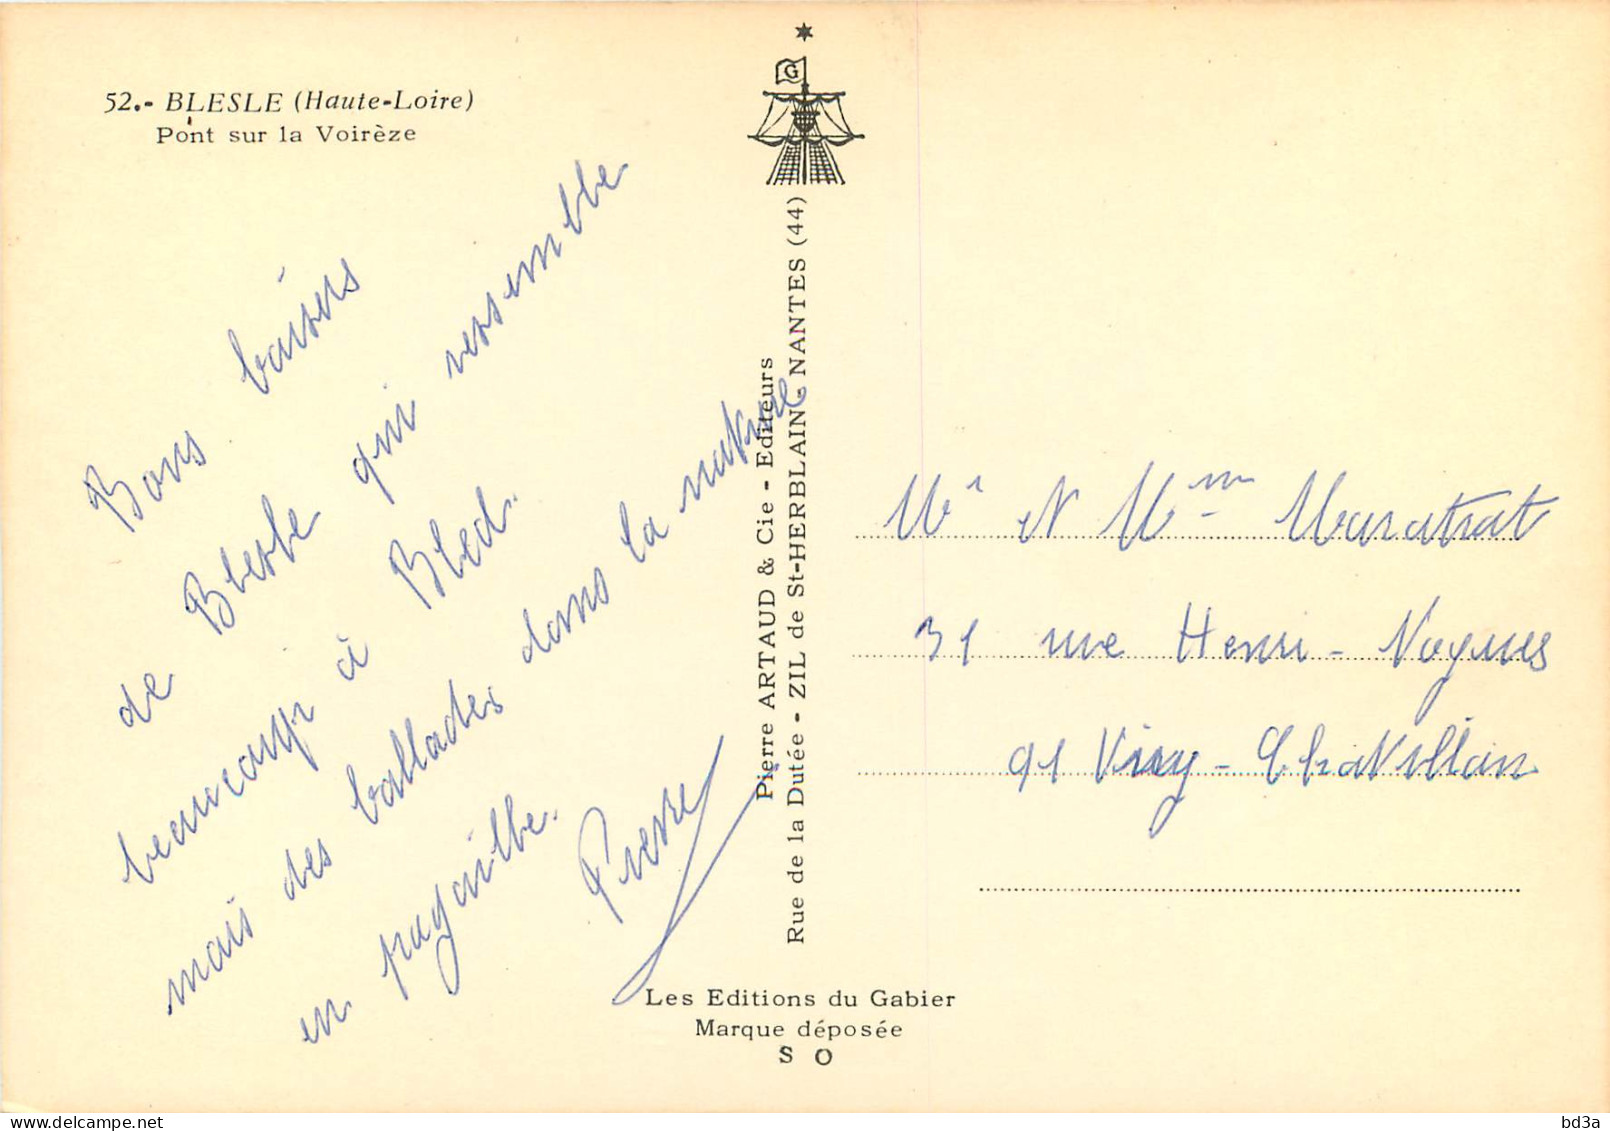 52.- BLESLE (Haute-Loire)
Pont sur la Voirèze
Bons baisers
de Blesle qui ressemble
beaucoup à Bled.
mais des ballades dans la nature
en pagaille.
Pierre
G
Pierre ARTAUD & Cie - Editeurs
Rue de la Dutée - ZIL de St-HERBLAIN - NANTES (44)
Les Editions du Gabier
Marque déposée
S O
Mr et Mme Maratrat
31 rue Henri - Nogues
91 Viry - Chatillon
bd3a